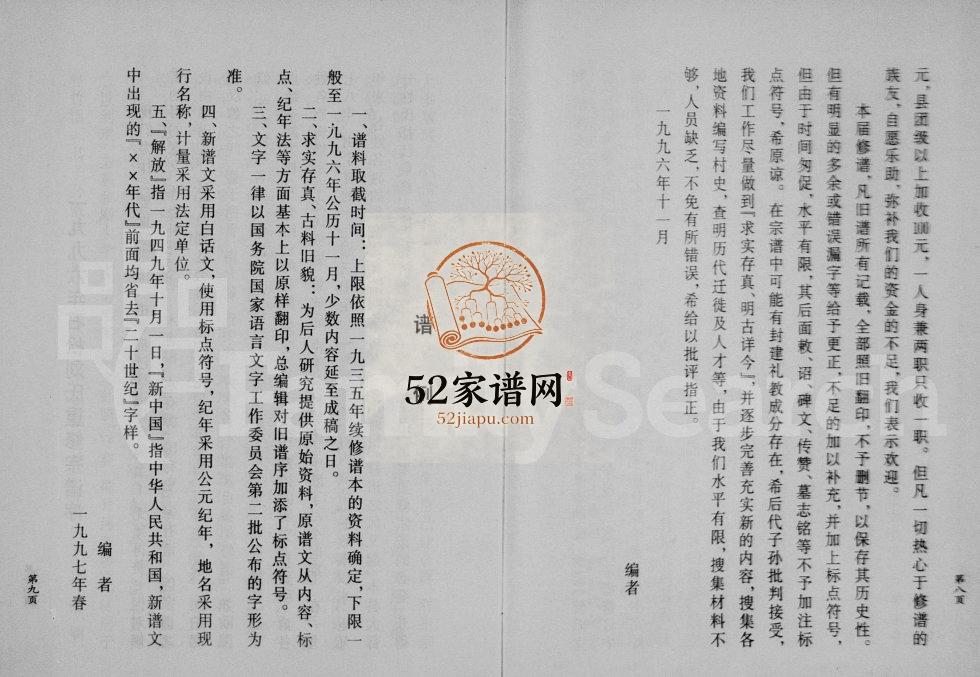 元，县团级以上加收100元，一人身兼两职只收一职。但凡一切热心于修谱的
族友，自愿乐助，弥补我们的资金的不足，我们表示欢迎。
本届修谱，凡旧谱所有记载，全部照旧翻印，不予删节，以保存其历史性。
但有明显的多余或错误漏字等给予更正，不足的加以补充，并加上标点符号，
但由于时间匆促，水平有限，其后面敕、诏、碑文、传赞、墓志铭等不予加注标
点符号，希原谅。在宗谱中可能有封建礼教成分存在，希后代子孙批判接受，
我们工作尽量做到『求实存真、明古详今』，并逐步完善充实新的内容，搜集各
地资料编写村史，查明历代迁徙及人才等，由于我们水平有限，搜集材料不
够，人员缺乏，不免有所错误，希给以批评指正。
编者
一九九六年十一月
第八页
谱例
一、谱料取截时间：上限依照一九三五年续修谱本的资料确定，下限一
般至一九九六年公历十一月，少数内容延至成稿之日。
二、求实存真、古料旧貌：为后人研究提供原始资料，原谱文从内容、标
点、纪年法等方面基本上以原样翻印，总编辑对旧谱序加添了标点符号。
三、文字一律以国务院国家语言文字工作委员会第二批公布的字形为
准。
四、新谱文采用白话文，使用标点符号，纪年采用公元纪年，地名采用现
行名称，计量采用法定单位。
五、『解放』指一九四九年十月一日，『新中国』指中华人民共和国，新谱文
中出现的『××年代』前面均省去『二十世纪』字样。
编者
一九九七年春
第九页
52家谱网
52jiapu.com
FamilySearch